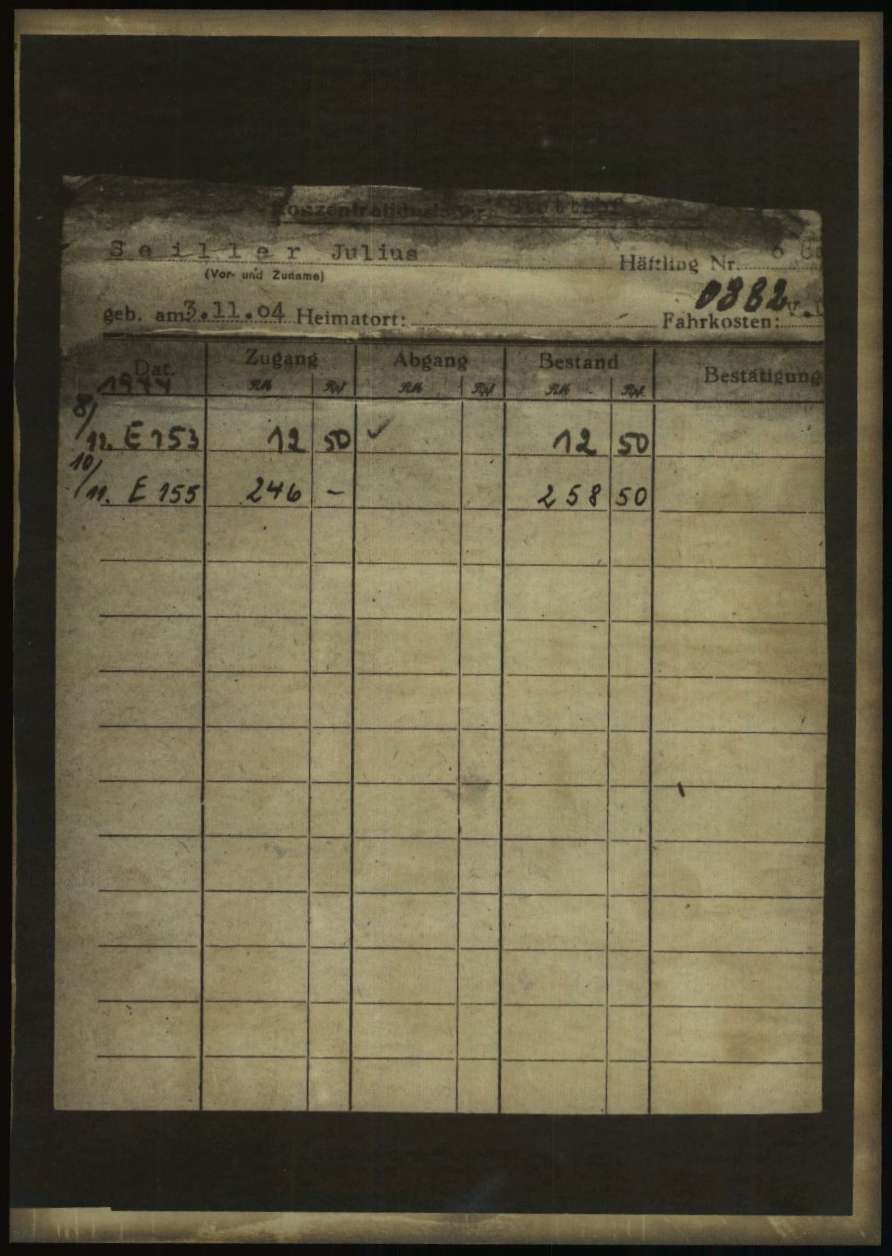 Konzentrationslager Stutthof
Seiller Julius Häftling Nr.
(Vor- und Zuname)
0382
geb. am 3.11.04 Heimatort: Fahrkosten:
Dat. Zugang Abgang Bestand Bestätigung
1944 RM Rpf RM Rpf RM Rpf
8/12. E 153 12 50 ✓ 12 50
10/11. E 155 246 – 258 50